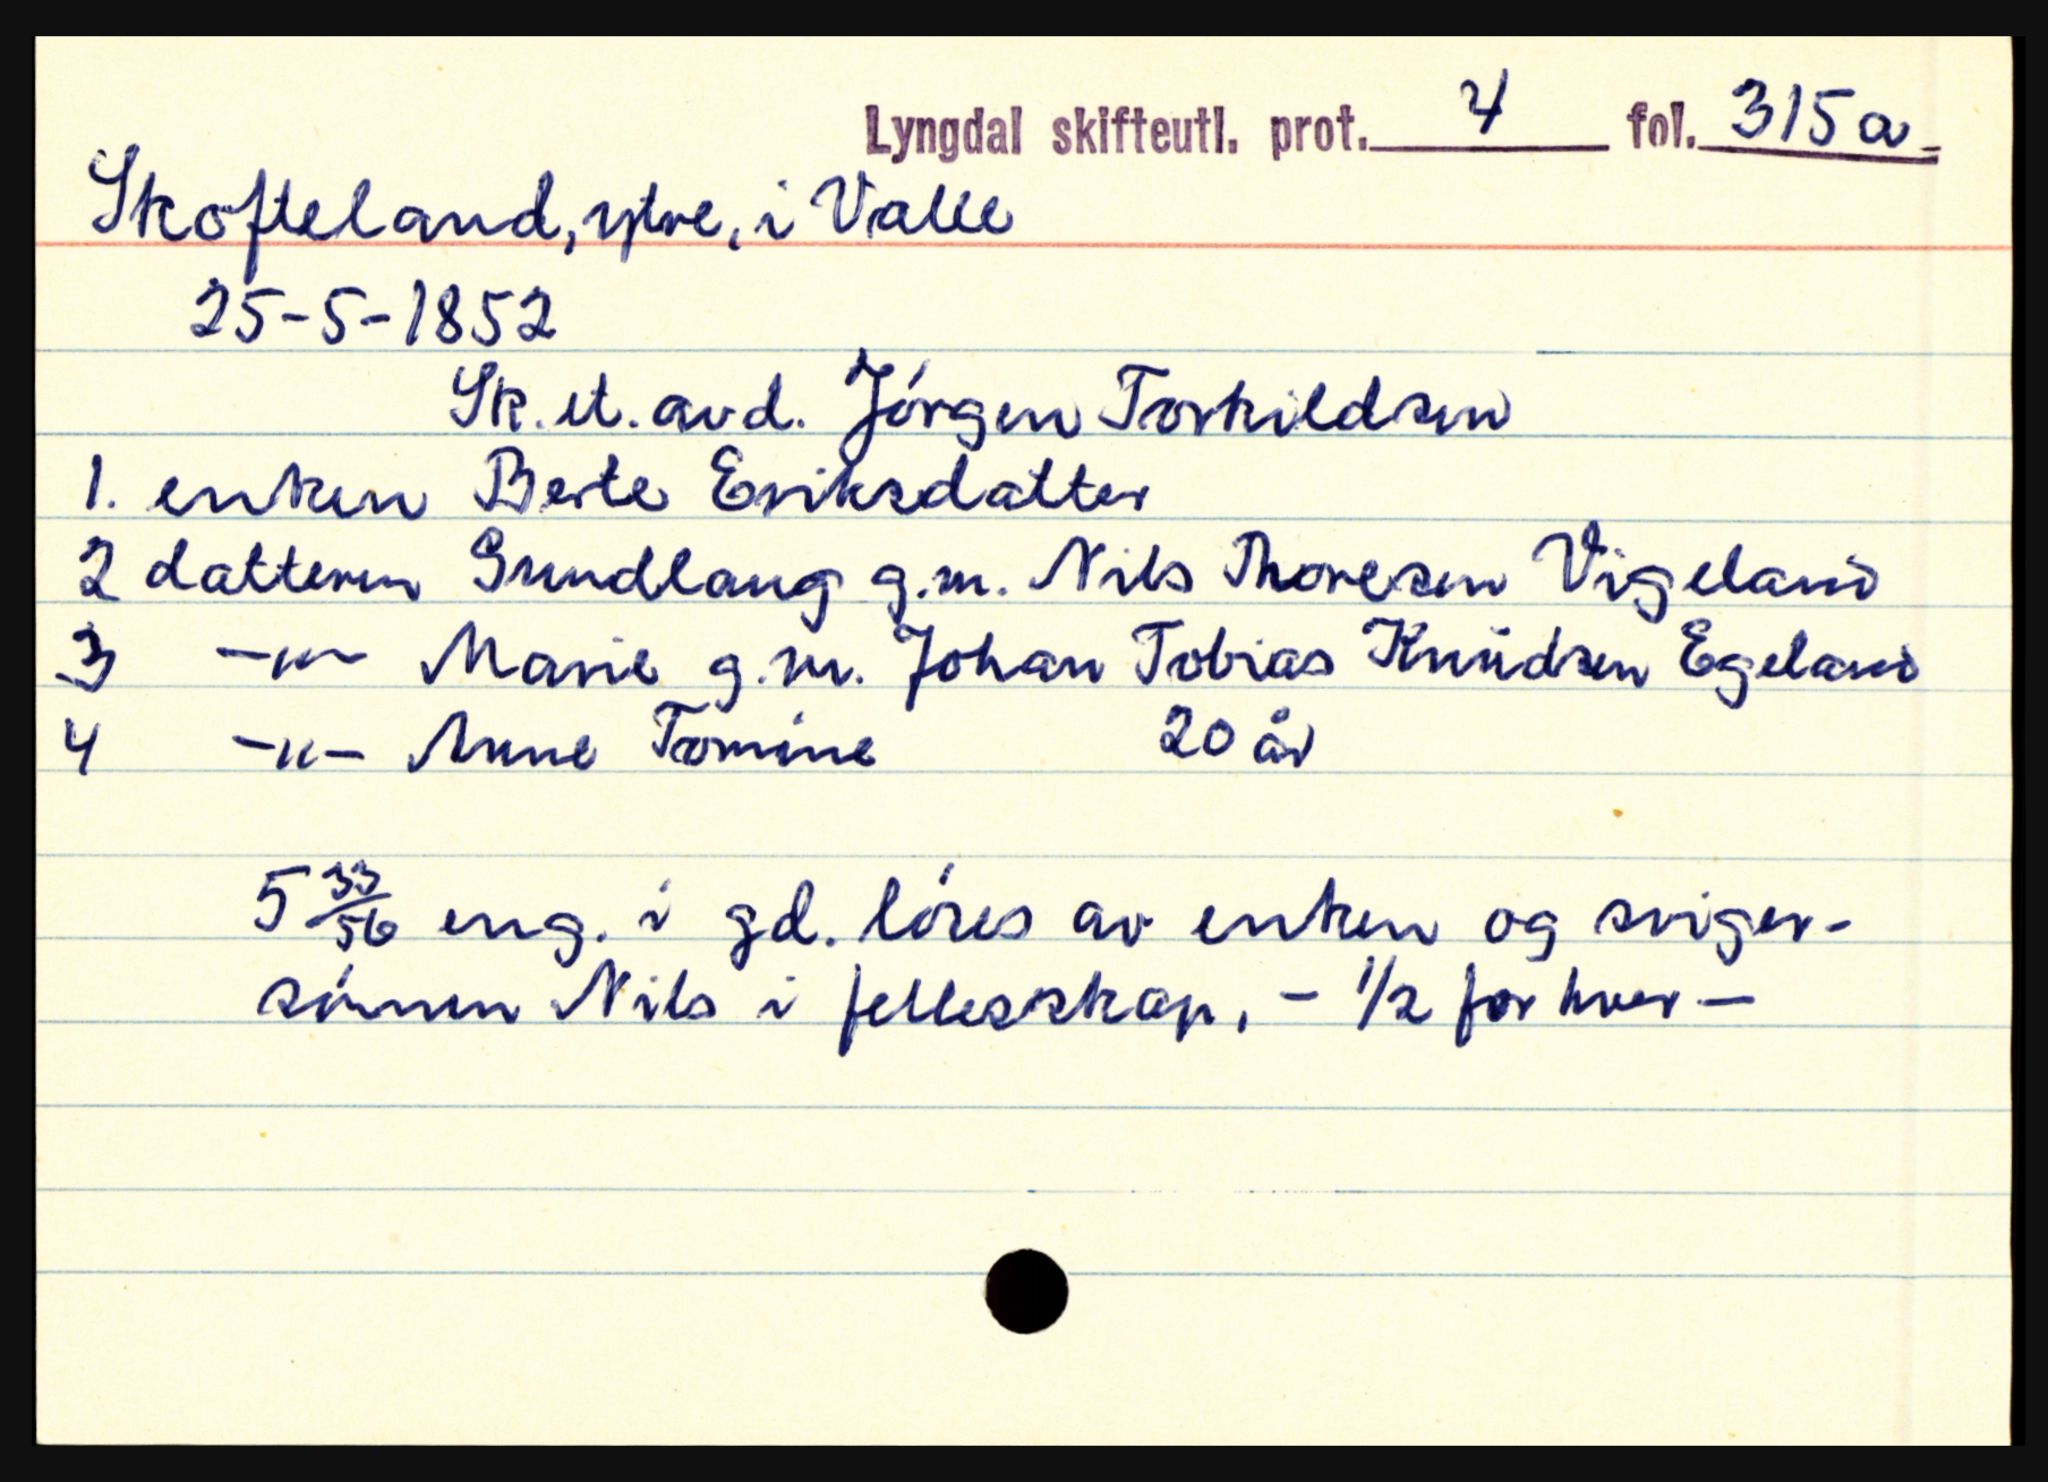 Lyngdal skifteutl. prot. 4 fol. 315a
Skofteland, ytre, i Valle
25-5-1852
Sk. et. avd. Jórgen Torkildsen
1. enken Berte Eriksdatter
2 datteren Gundlaug g.m. Nils Thoresen Vigeland
3 -"- Marie g.m. Johan Tobias Knudsen Egeland
4 -"- Anne Tomine 20 år
5 33/56 eng. i gd. lóses av enken og sviger-
sónnen Nils i fellesskap, - 1/2 for hver -